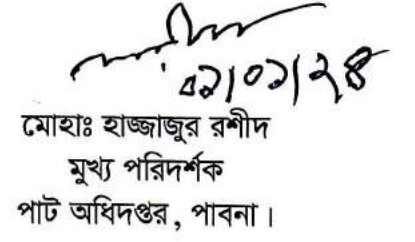 ০১/০১/২৪
মোহাঃ হাজ্জাজুর রশীদ
মুখ্য পরিদর্শক
পাট অধিদপ্তর, পাবনা।